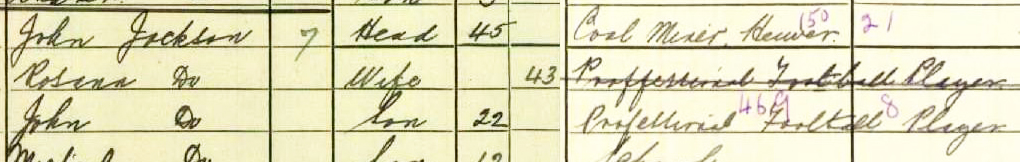 John Jackson 7 Head 45 Coal Miner, Hewer. 150 21
Rosena Do Wife 43 Proffessional Football Player
John Do Son 22 Professional Football Player 469 8
Do